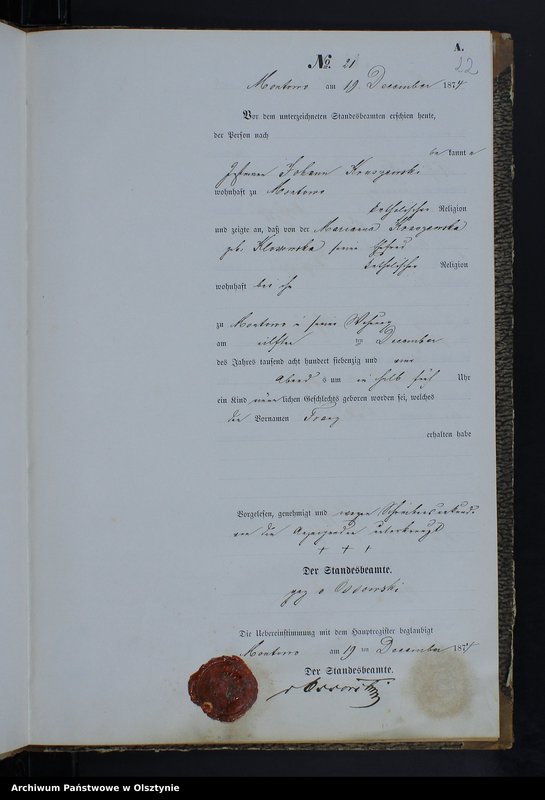 A.
22
No. 21
Montowo am 19 December 1874
Vor dem unterzeichneten Standesbeamten erschien heute,
der Person nach
be kannt e
Johann
wohnhaft zu Montowo
katholischer Religion
und zeigte an, daß von der Marianna
geb. seiner Ehefrau
katholischer Religion
wohnhaft bei ihm
zu Montowo in seiner Wohnung
am eilften ten December
des Jahres tausend acht hundert siebenzig und vier
Abend s um halb fünf Uhr
ein Kind männ lichen Geschlechts geboren worden sei, welches
die Vornamen Franz
erhalten habe
Vorgelesen, genehmigt und wegen
von dem Anzeigenden unterkreuzt
+ + +
Der Standesbeamte.
gez v Ossowski
Die Uebereinstimmung mit dem Hauptregister beglaubigt
Montowo am 19 ten December 1874
Der Standesbeamte.
v Ossowski
Archiwum Państwowe w Olsztynie